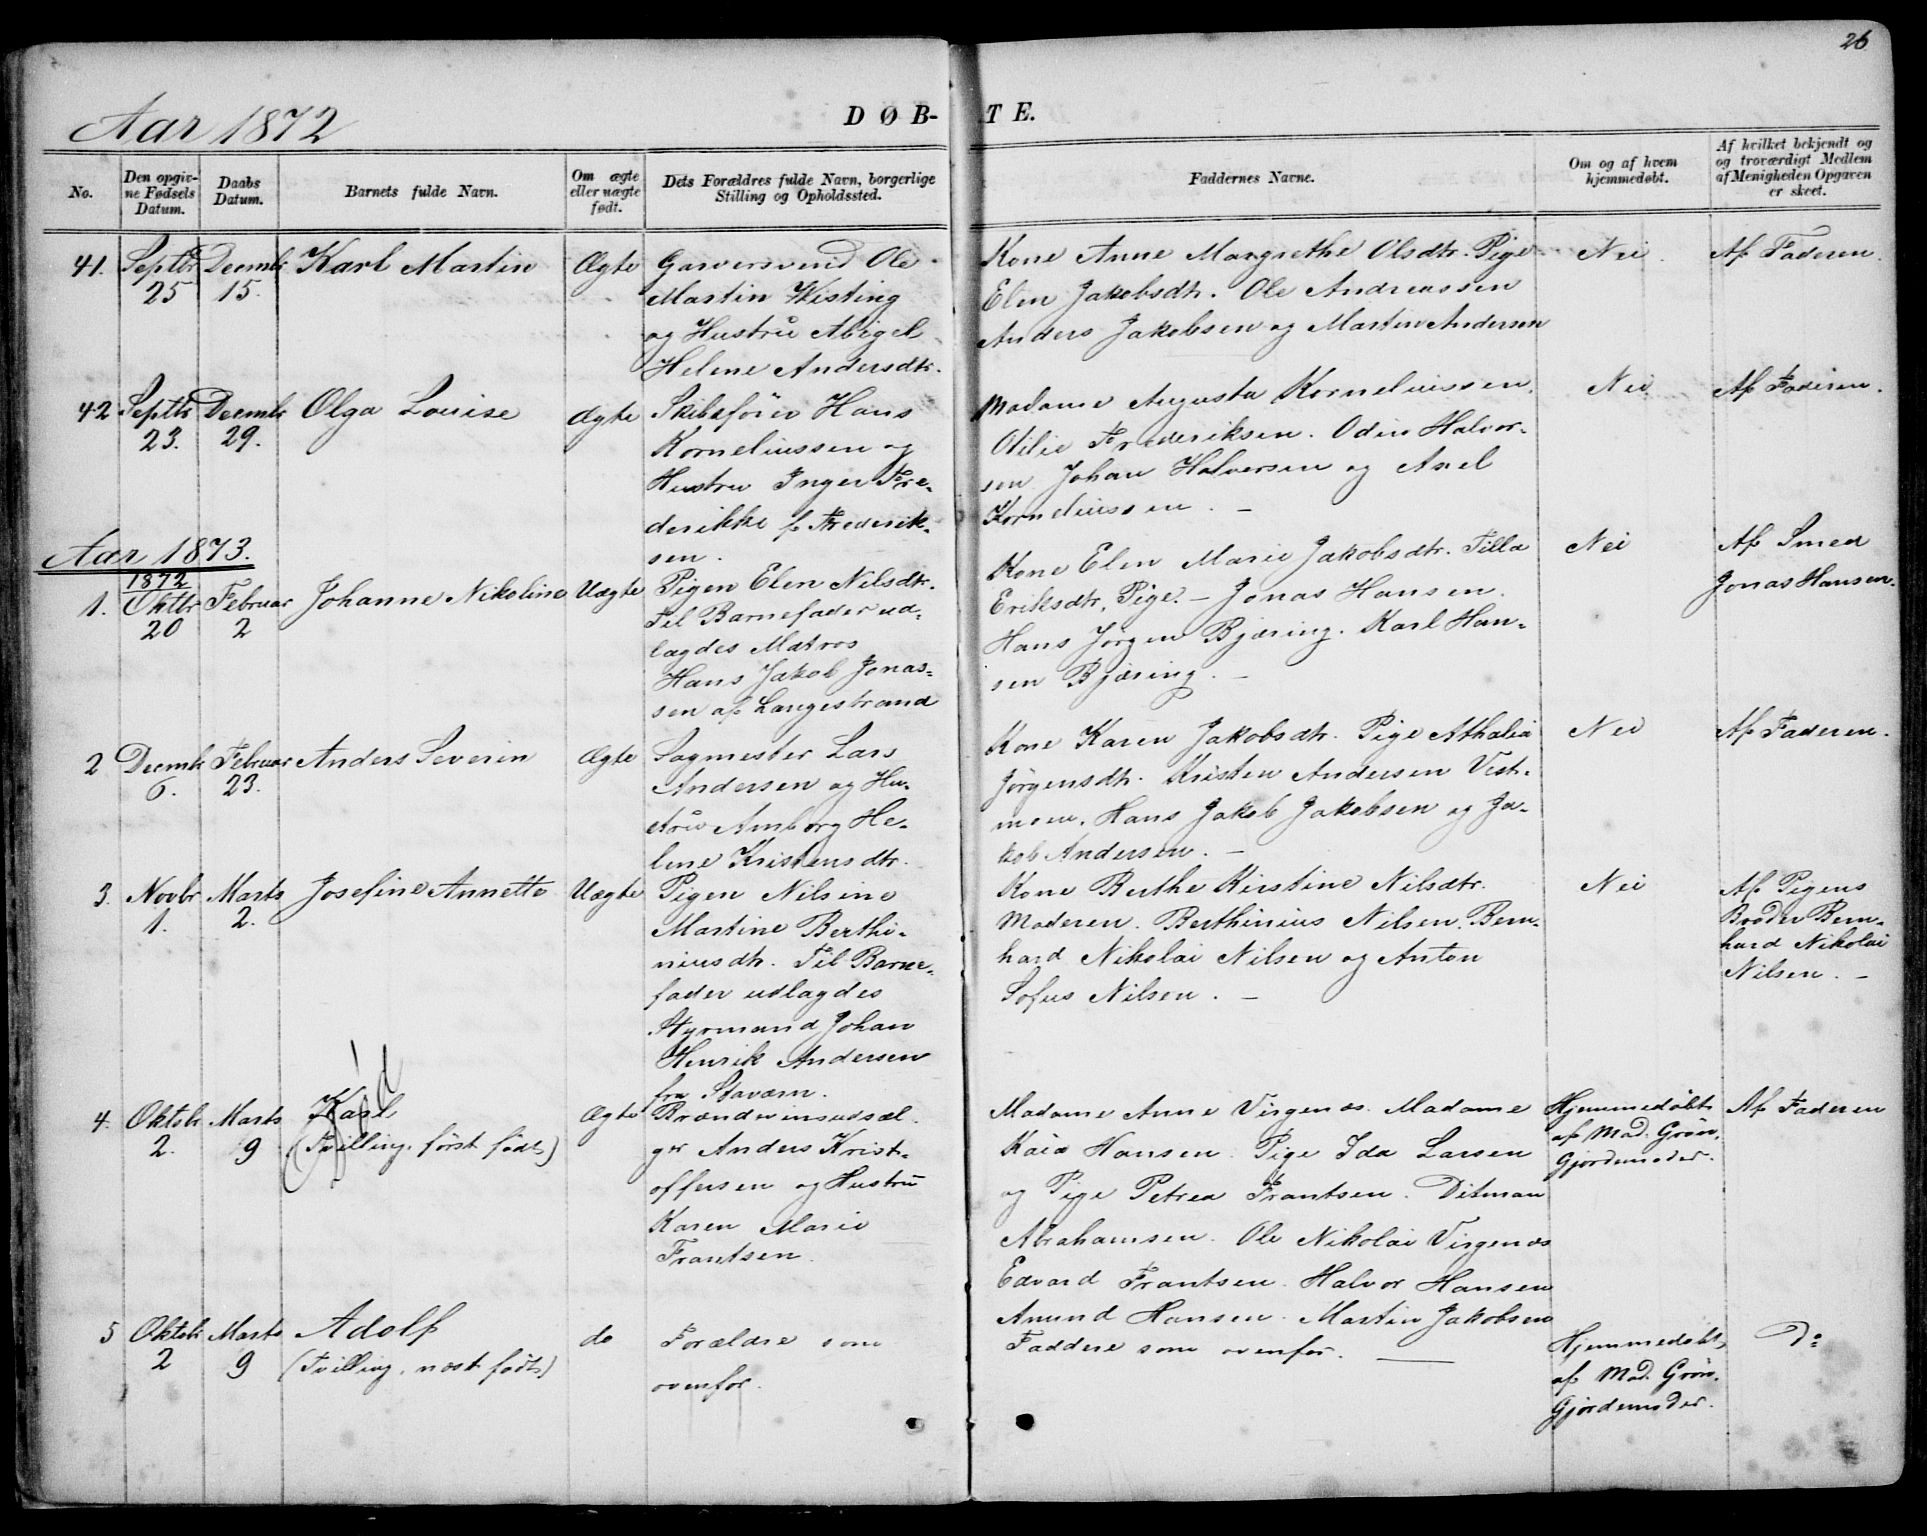 26
Aar 1872
DØB-
TE.
No.
Den opgiv-
ne Fødsels
Datum.
Daabs
Datum.
Barnets fulde Navn.
Om ægte
eller uægte
født.
Dets Forældres fulde Navn, borgerlige
Stilling og Opholdssted.
Faddernes Navne.
Om og af hvem
hjemmedøbt.
Af hvilket bekjendt og
og troværdigt Medlem
af Menigheden Opgaven
er skeet.
41.
Septbr
25
Decmbr
15.
Karl Martin
Ægte
Garversvend Ole
Martin Wisting
og Hustru Abigel
Helene Andersdtr.
Kone Anne Margrethe Olsdtr. Pige
Elen Jakobsdtr. Ole Andreassen
Anders Jakobsen og Martin Andersen
Nei.
Af Faderen.
42
Septbr
23.
Decmbr
29.
Olga Louise
Ægte
Skibsfører Hans
Korneliussen og
Hustru Inger Fre-
derikke f. Frederik-
sen.
Madame Augusta Korneliussen.
Otilie Frederiksen. Odin Halvor-
sen Johan Halvorsen og Axel
Korneliussen. –
Nei
Af Faderen.
Aar 1873.
1.
1872
Oktbr
20
Februar
2
Johanne Nikoline
Uægte
Pigen Elen Nilsdtr.
Til Barnefader ud-
lagdes Matros
Hans Jakob Jonas-
sen af Langestrand
Kone Elen Marie Jakobsdtr. Tilla
Eriksdtr, Pige. – Jonas Hansen.
Hans Jørgen Bjæring. Karl Han-
sen Bjæring. –
Nei
Af Smed
Jonas Hansen.
2
Decmbr
6.
Februar
23.
Anders Severin
Ægte
Sagmester Lars
Andersen og Hu-
stru Amborg He-
lene Kristensdtr.
Kone Karen Jakobsdtr. Pige Athalia
Jørgensdtr. Kristen Andersen Vest-
moen. Hans Jakob Jakobsen og Ja-
kob Andersen. –
Nei
Af Faderen.
3.
Novbr
1.
Marts
2.
Josefine Annette
Uægte
Pigen Nilsine
Martine Berthi-
niusdtr. Til Barne-
fader udlagdes
Styrmand Johan
Henrik Andersen
fra Staværn.
Kone Berthe Kirstine Nilsdtr.
Moderen. Berthinius Nilsen. Bern-
hard Nikolai Nilsen og Anton
Sofus Nilsen. –
Nei
Af Pigens
Broder Bern-
hard Nikolai
Nilsen. –
4.
Oktbr
2.
Marts
9
Karl
(Tvilling, først født)
Død
Ægte
Brændevinsudsæl-
ger Anders Krist-
offersen og Hustru
Karen Marie
Frantsen.
Madame Anne Virgenæs. Madame
Kaia Hansen. Pige Ida Larsen
og Pige Petrea Frantsen. Ditman
Abrahamsen. Ole Nikolai Virgenæs
Edvard Frantsen. Halvor Hansen
Amund Hansen. Martin Jakobsen
Hjemmedøbt
af Mad. Grøn,
Gjordemoder.
Af Faderen
5
Oktbr
2
Marts
9
Adolf
(Tvilling, næst født)
do
Forældre som
ovenfor.
Faddere som ovenfor. —
Hjemmedøbt
af Mad. Grøn.
Gjordemoder.
Do